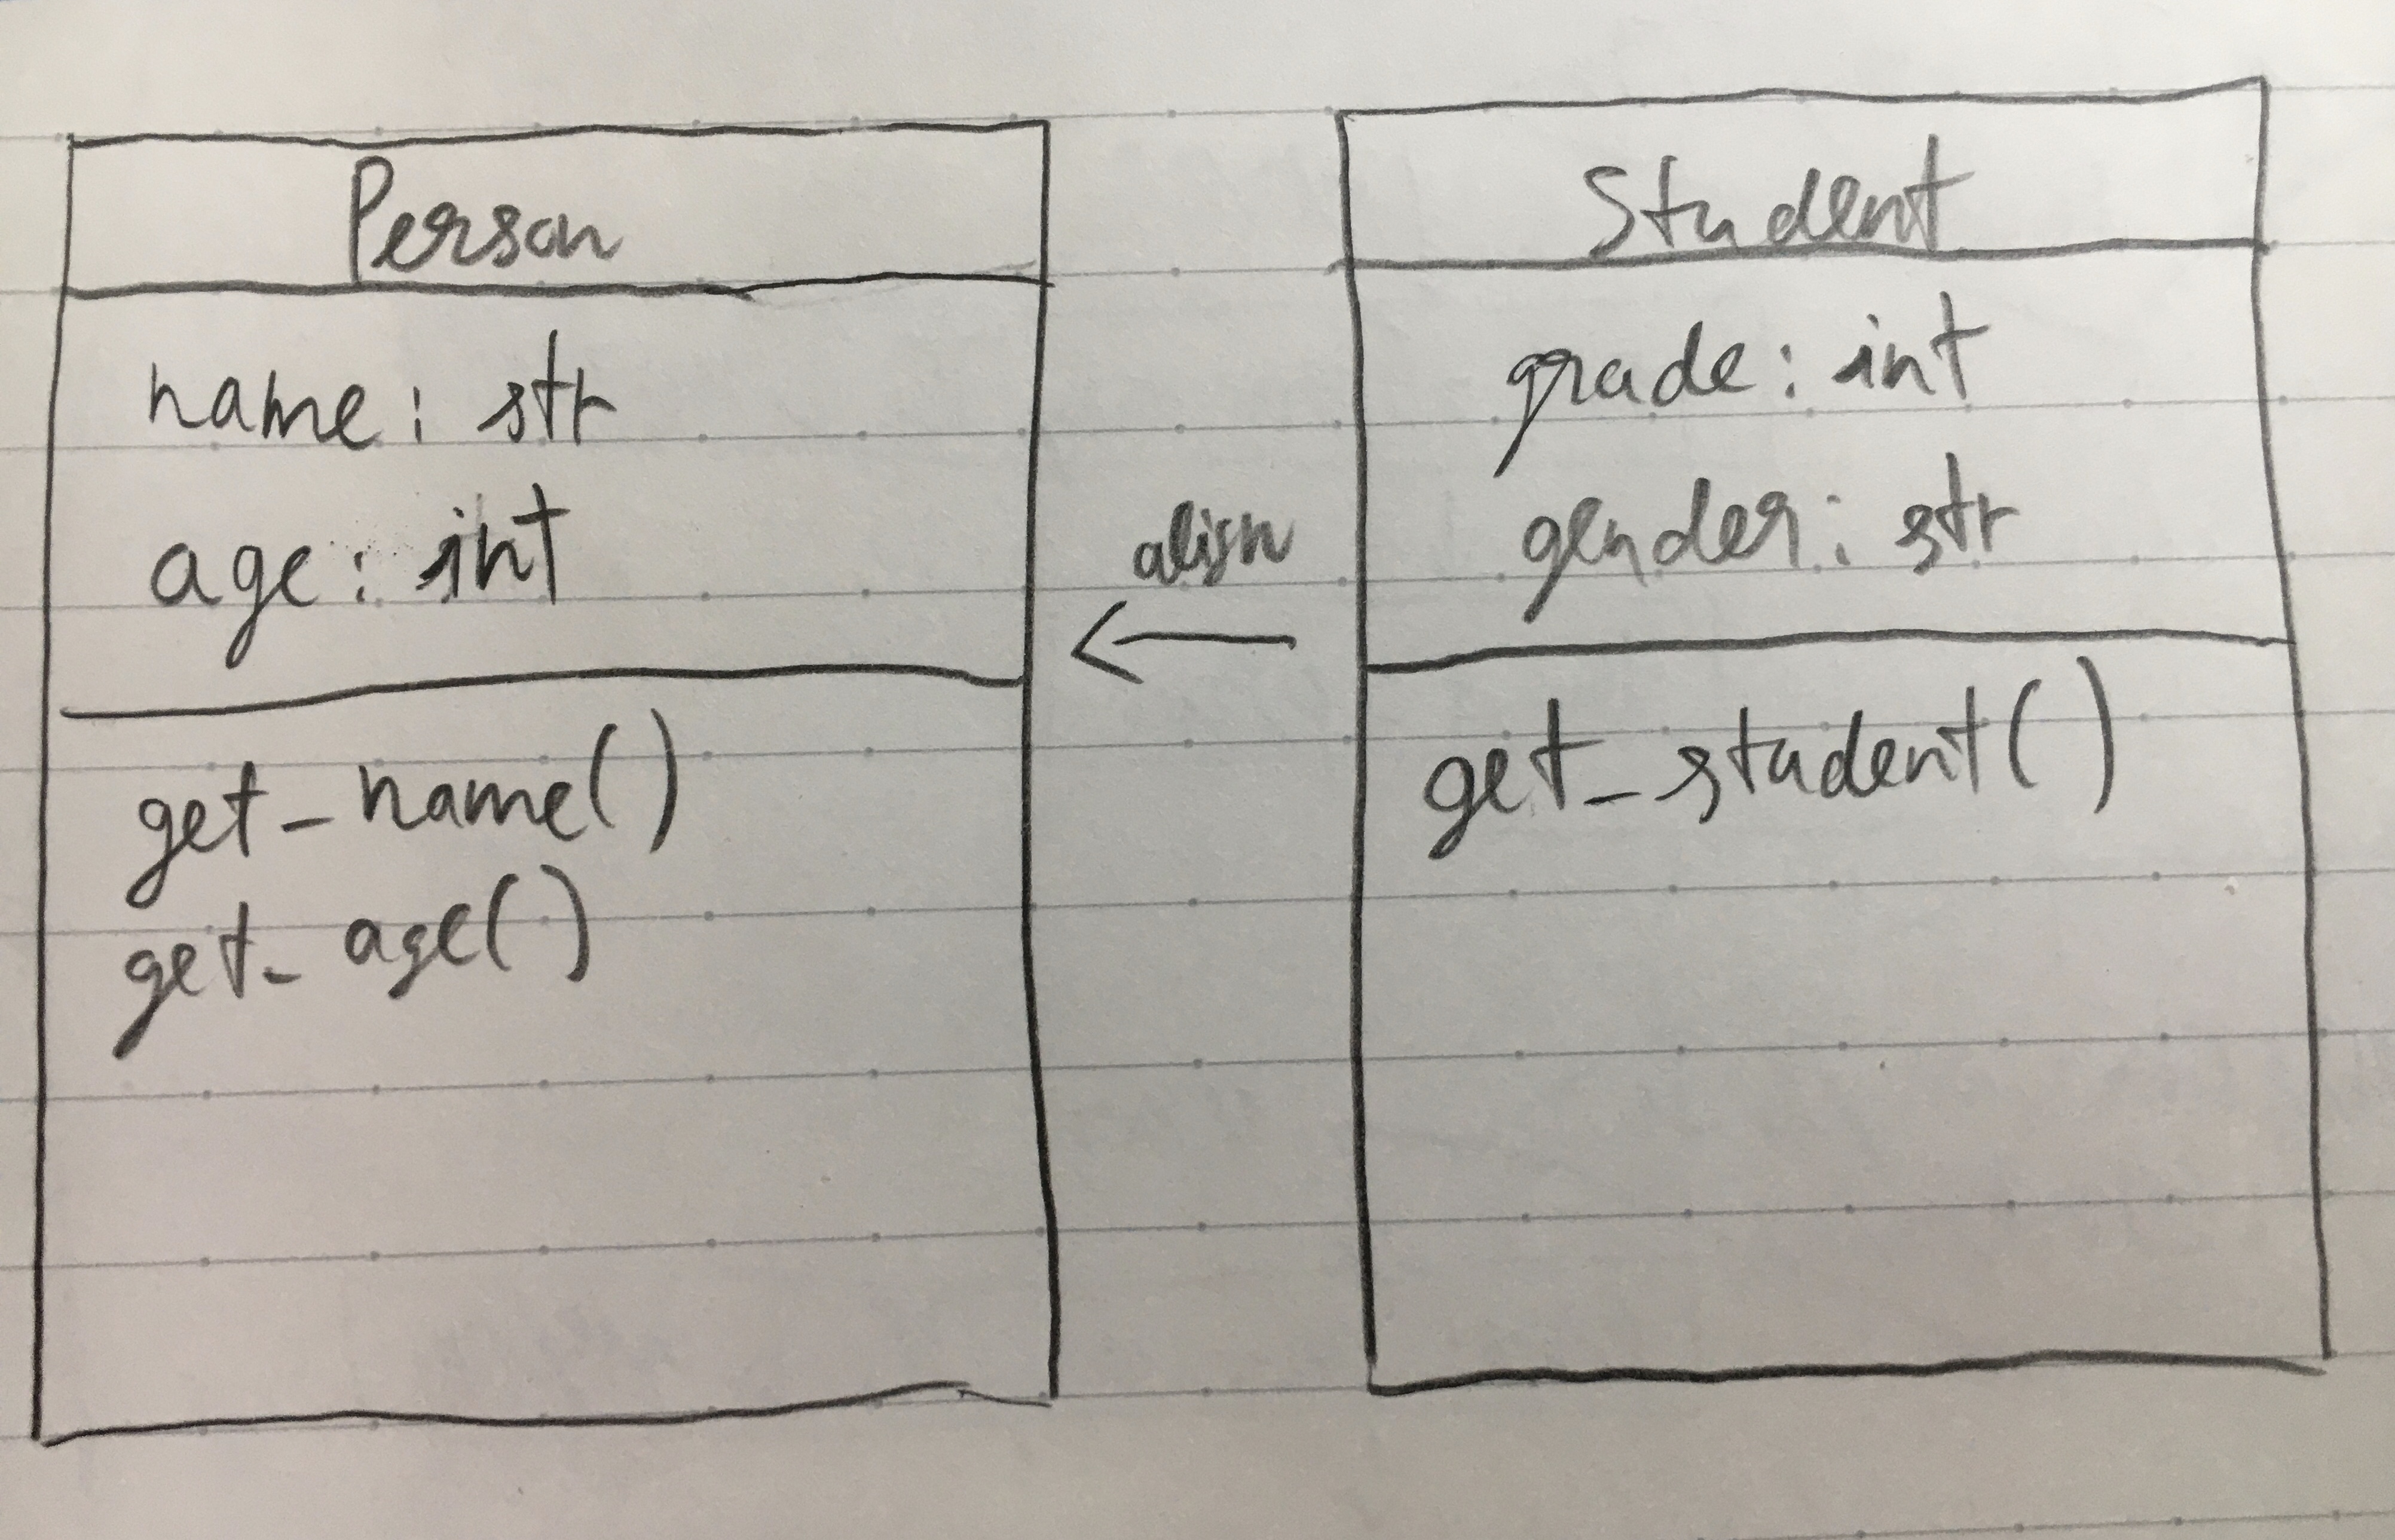 Person
name: str
age: int
get_name()
get_age()
align
Student
grade: int
gender: str
get_student()